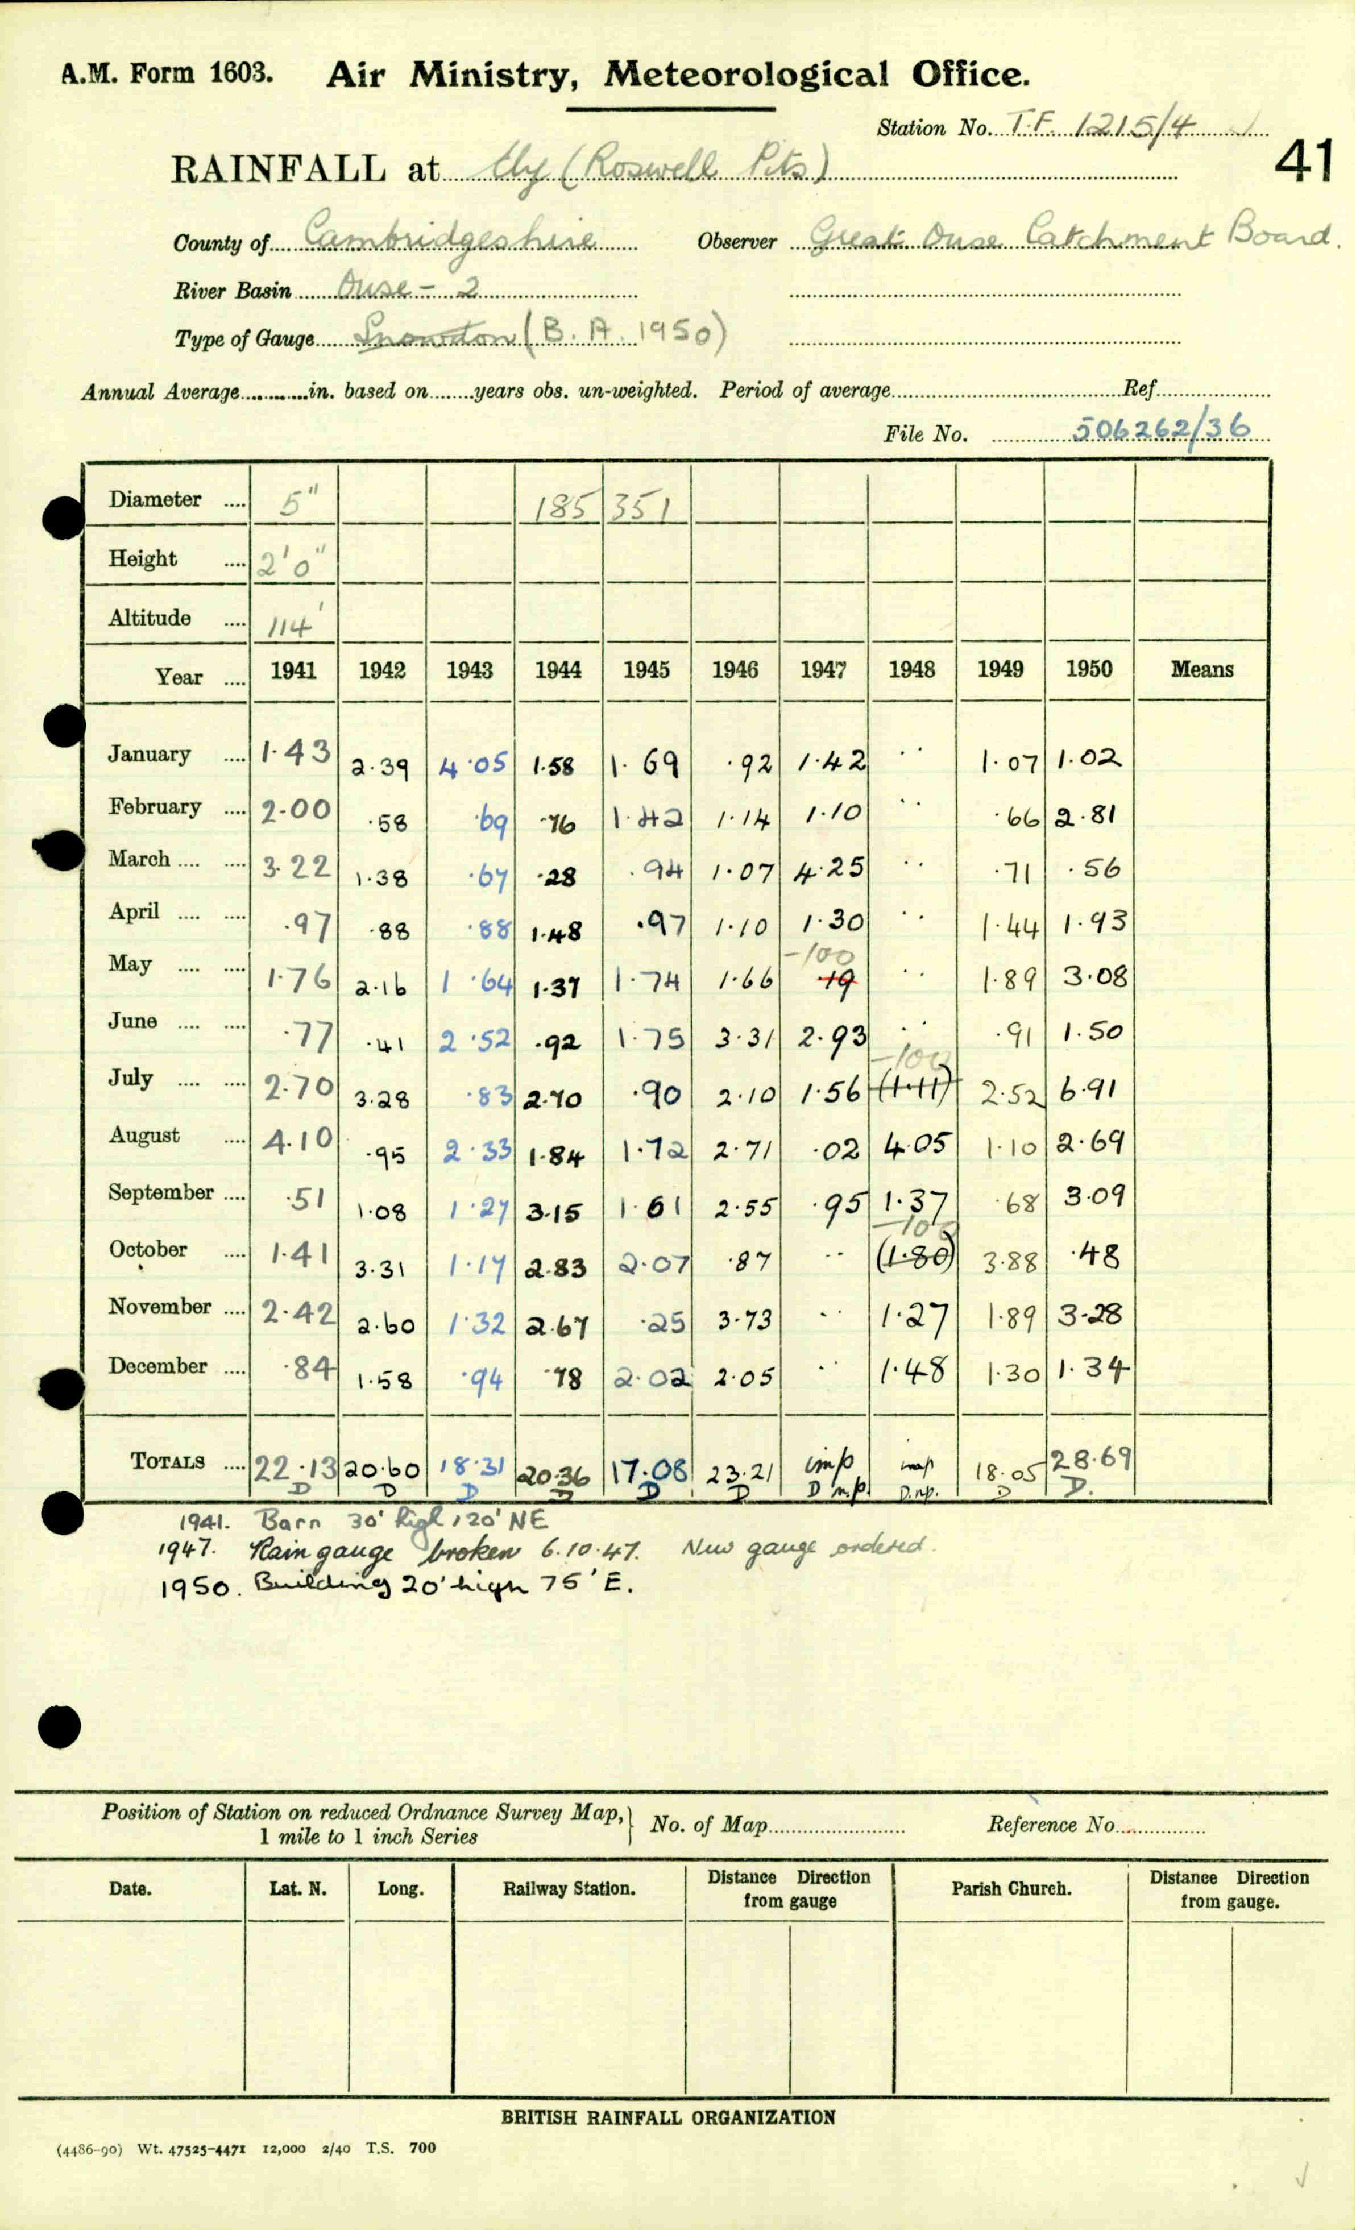 A.M. Form 1603. Air Ministry, Meteorological Office.
Station No. T.F. 1215/4
41
RAINFALL at Ely (Roswell Pits)
County of Cambridgeshire Observer Great Ouse Catchment Board.
River Basin Ouse - 2
Type of Gauge Snowdon (B.A. 1950)
Annual Average............in. based on........years obs. un-weighted. Period of average........ Ref........
File No. 506262/36
Diameter .... 5" 185 351
Height .... 2'0"
Altitude .... 114'
Year .... 1941 1942 1943 1944 1945 1946 1947 1948 1949 1950 Means
January .... 1.43 2.39 4.05 1.58 1.69 .92 1.42 .. 1.07 1.02
February .... 2.00 .58 .69 .76 1.42 1.14 1.10 .. .66 2.81
March .... .... 3.22 1.38 .67 .28 .94 1.07 4.25 .. .71 .56
April .... .... .97 .88 .88 1.48 .97 1.10 1.30 .. 1.44 1.93
-100
May .... .... 1.76 2.16 1.64 1.37 1.74 1.66 .19 .. 1.89 3.08
June .... .... .77 .41 2.52 .92 1.75 3.31 2.93 .. .91 1.50
-100
July .... .... 2.70 3.28 .83 2.70 .90 2.10 1.56 (1.11) 2.52 6.91
August .... 4.10 .95 2.33 1.84 1.72 2.71 .02 4.05 1.10 2.69
September .... .51 1.08 1.27 3.15 1.61 2.55 .95 1.37 .68 3.09
-100
October .... 1.41 3.31 1.17 2.83 2.07 .87 .. (1.80) 3.88 .48
November .... 2.42 2.60 1.32 2.67 .25 3.73 .. 1.27 1.89 3.28
December .... .84 1.58 .94 .78 2.02 2.05 .. 1.48 1.30 1.34
TOTALS .... 22.13 20.60 18.31 20.36 17.08 23.21 imp imp 18.05 28.69
D D D D D D D n.p. D.n.p. D D.
1941. Barn 30' high 120' NE
1947. Rain gauge broken 6.10.47. New gauge ordered.
1950. Building 20' high 75' E.
Position of Station on reduced Ordnance Survey Map, } No. of Map........ Reference No........
1 mile to 1 inch Series
Date. Lat. N. Long. Railway Station. Distance Direction from gauge Parish Church. Distance Direction from gauge.
BRITISH RAINFALL ORGANIZATION
(4486-90) Wt. 47525-4471 12,000 2/40 T.S. 700